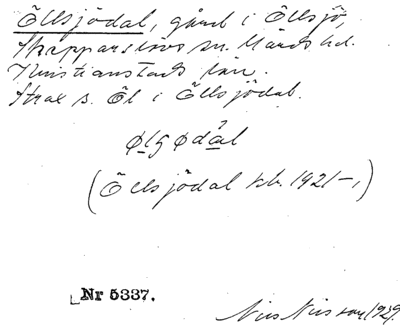 Öllsjödal, gård i Öllsjö,
Skepparslövs sn. Gärds hd.
Kristianstads län.
Strax s. Öl i Öllsjödal.
(Öllsjödal kb. 1921–,)
Nr 5337.
Nils Nilsson 1929.